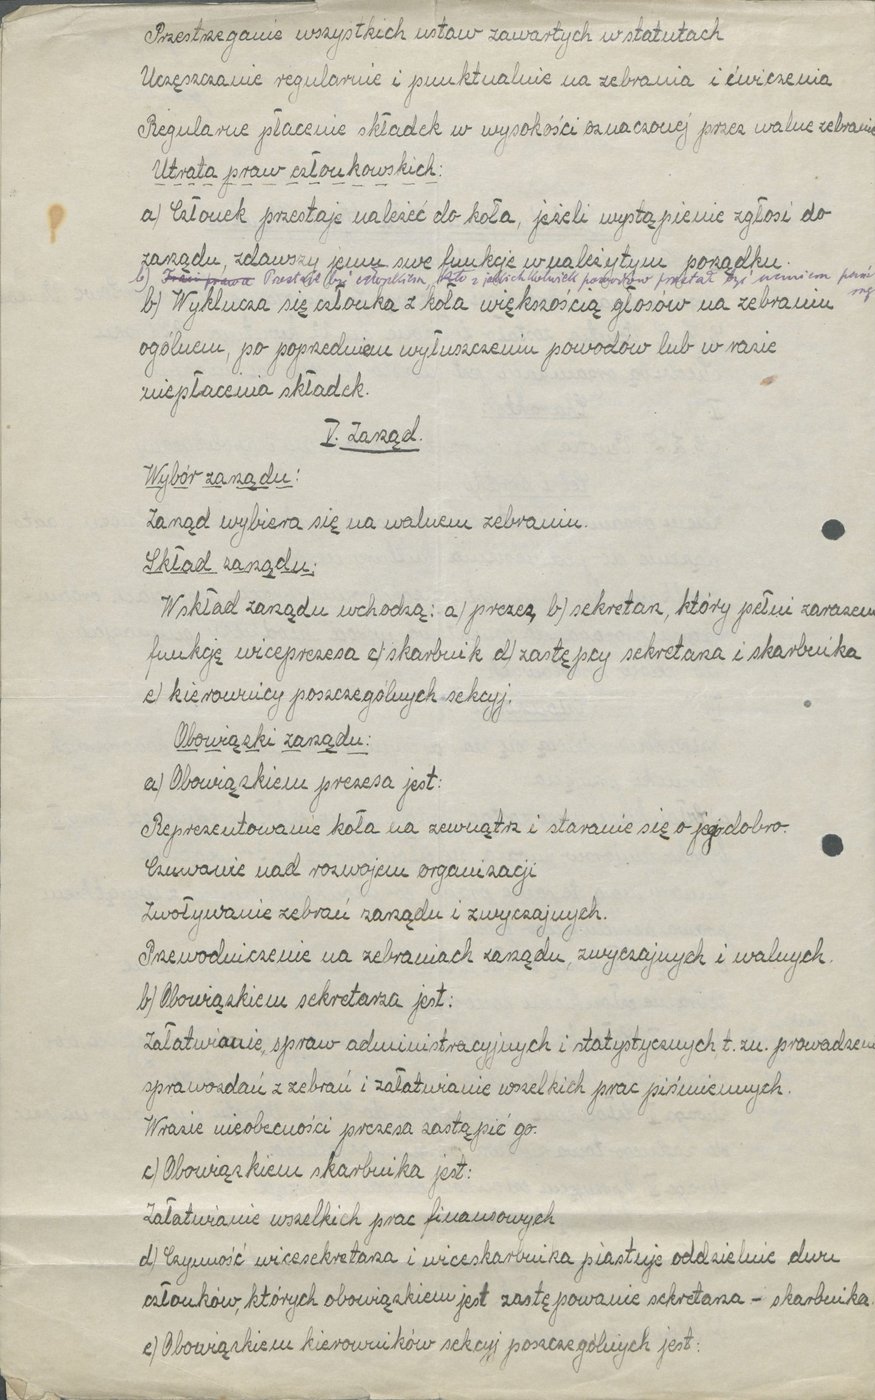 Przestrzeganie wszystkich ustaw zawartych w statutach
Uczęszczanie regularnie i punktualnie na zebrania i ćwiczenia
Regularne płacenie składek w wysokości oznaczonej przez walne zebranie
Utrata praw członkowskich:
a) Członek przestaje należeć do koła, jeżeli wystąpienie zgłosi do
zarządu, zdawszy jemu swe funkcje w należytym porządku.
b) Przestaje być członkiem, kto z jakichkolwiek powodów przestał być uczniem
b) Wyklucza się członka z koła większością głosów na zebraniu
ogólnem, po poprzedniem wyłuszczeniu powodów lub w razie
niepłacenia składek.
V. Zarząd.
Wybór zarządu:
Zarząd wybiera się na walnem zebraniu.
Skład zarządu:
W skład zarządu wchodzą: a) prezes, b) sekretarz, który pełni zarazem
funkcję wiceprezesa c) skarbnik d) zastępcy sekretarza i skarbnika
e) kierownicy poszczególnych sekcyj.
Obowiązki zarządu:
a) Obowiązkiem prezesa jest:
Reprezentowanie koła na zewnątrz i staranie się o jego dobro.
Czuwanie nad rozwojem organizacji
Zwoływanie zebrań zarządu i zwyczajnych.
Przewodniczenie na zebraniach zarządu, zwyczajnych i walnych.
b) Obowiązkiem sekretarza jest:
Załatwianie, spraw administracyjnych i statystycznych t. zn. prowadzenie
sprawozdań z zebrań i załatwianie wszelkich prac piśmiennych.
W razie nieobecności prezesa zastąpić go.
c) Obowiązkiem skarbnika jest:
Załatwianie wszelkich prac finansowych
d) Czynność wicesekretarza i wiceskarbnika piastuje oddzielnie dwu
członków, których obowiązkiem jest zastępowanie sekretarza – skarbnika.
e) Obowiązkiem kierowników sekcyj poszczególnych jest: